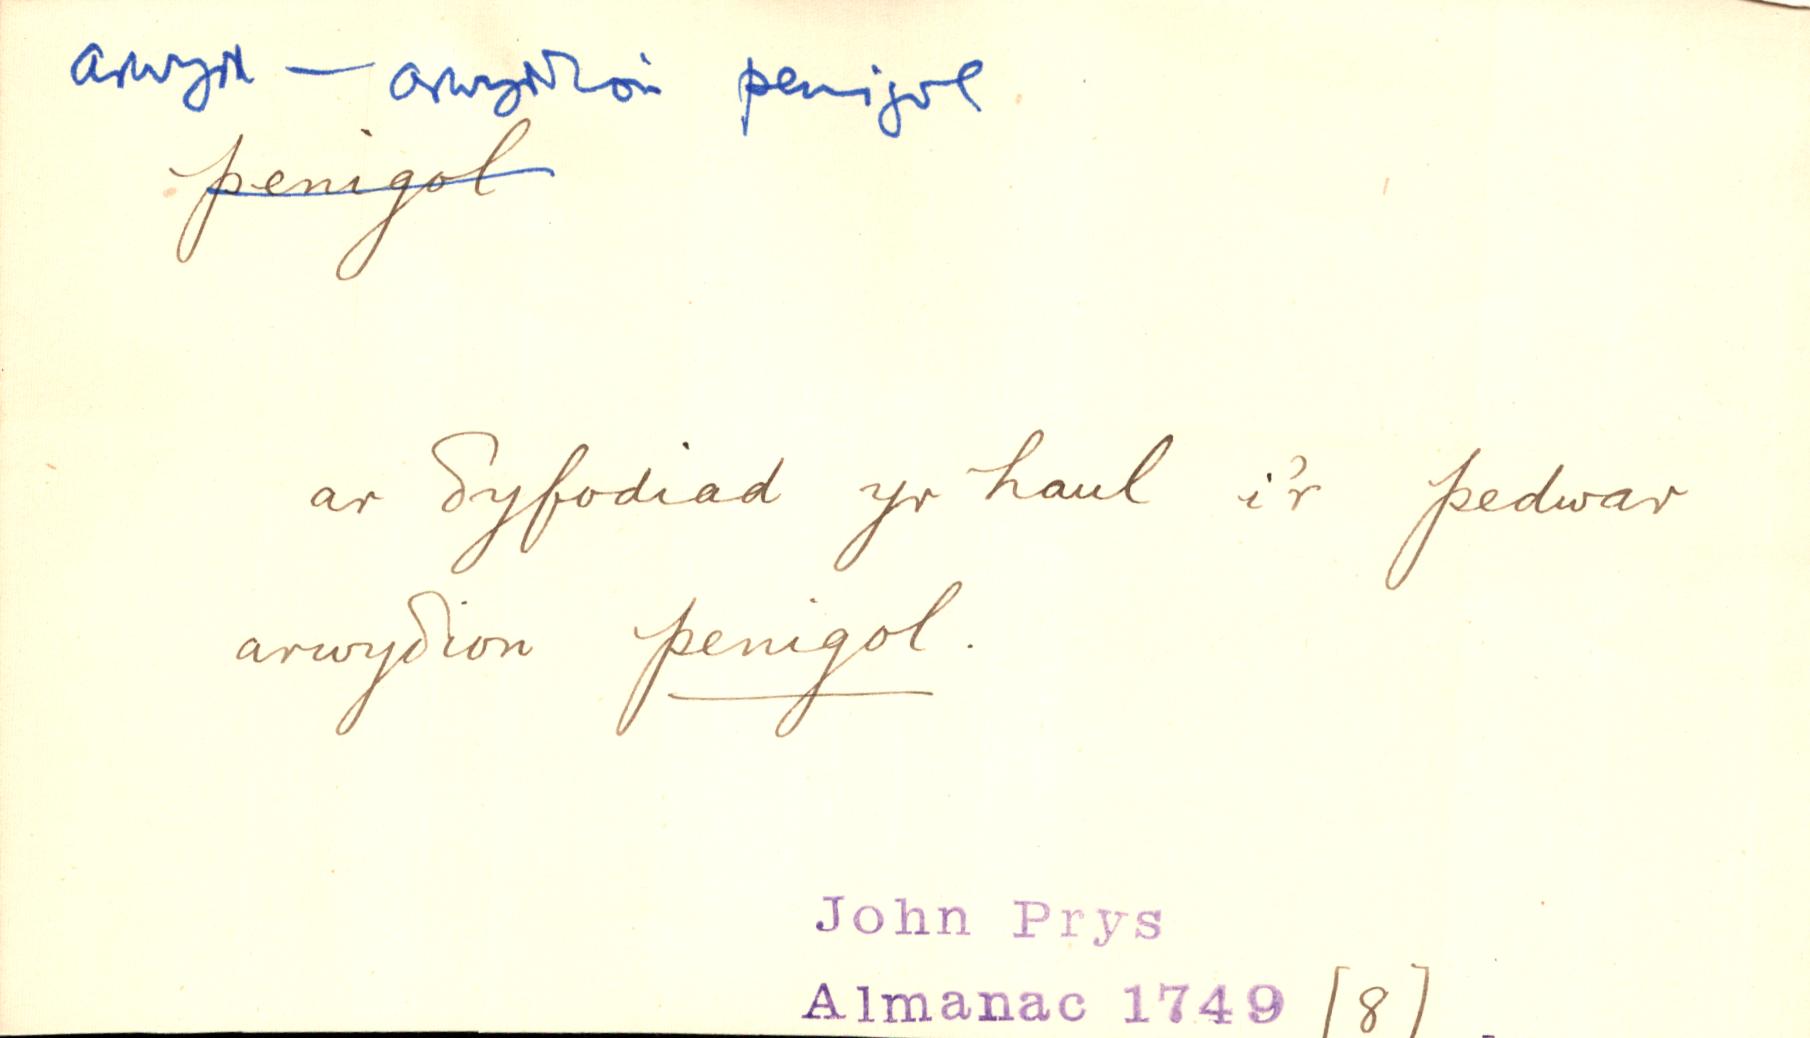 arwydd — arwyddion penigol
penigol
ar δyfodiad yr haul i'r pedwar
arwyδion penigol.
John Prys
Almanac 1749 [8]